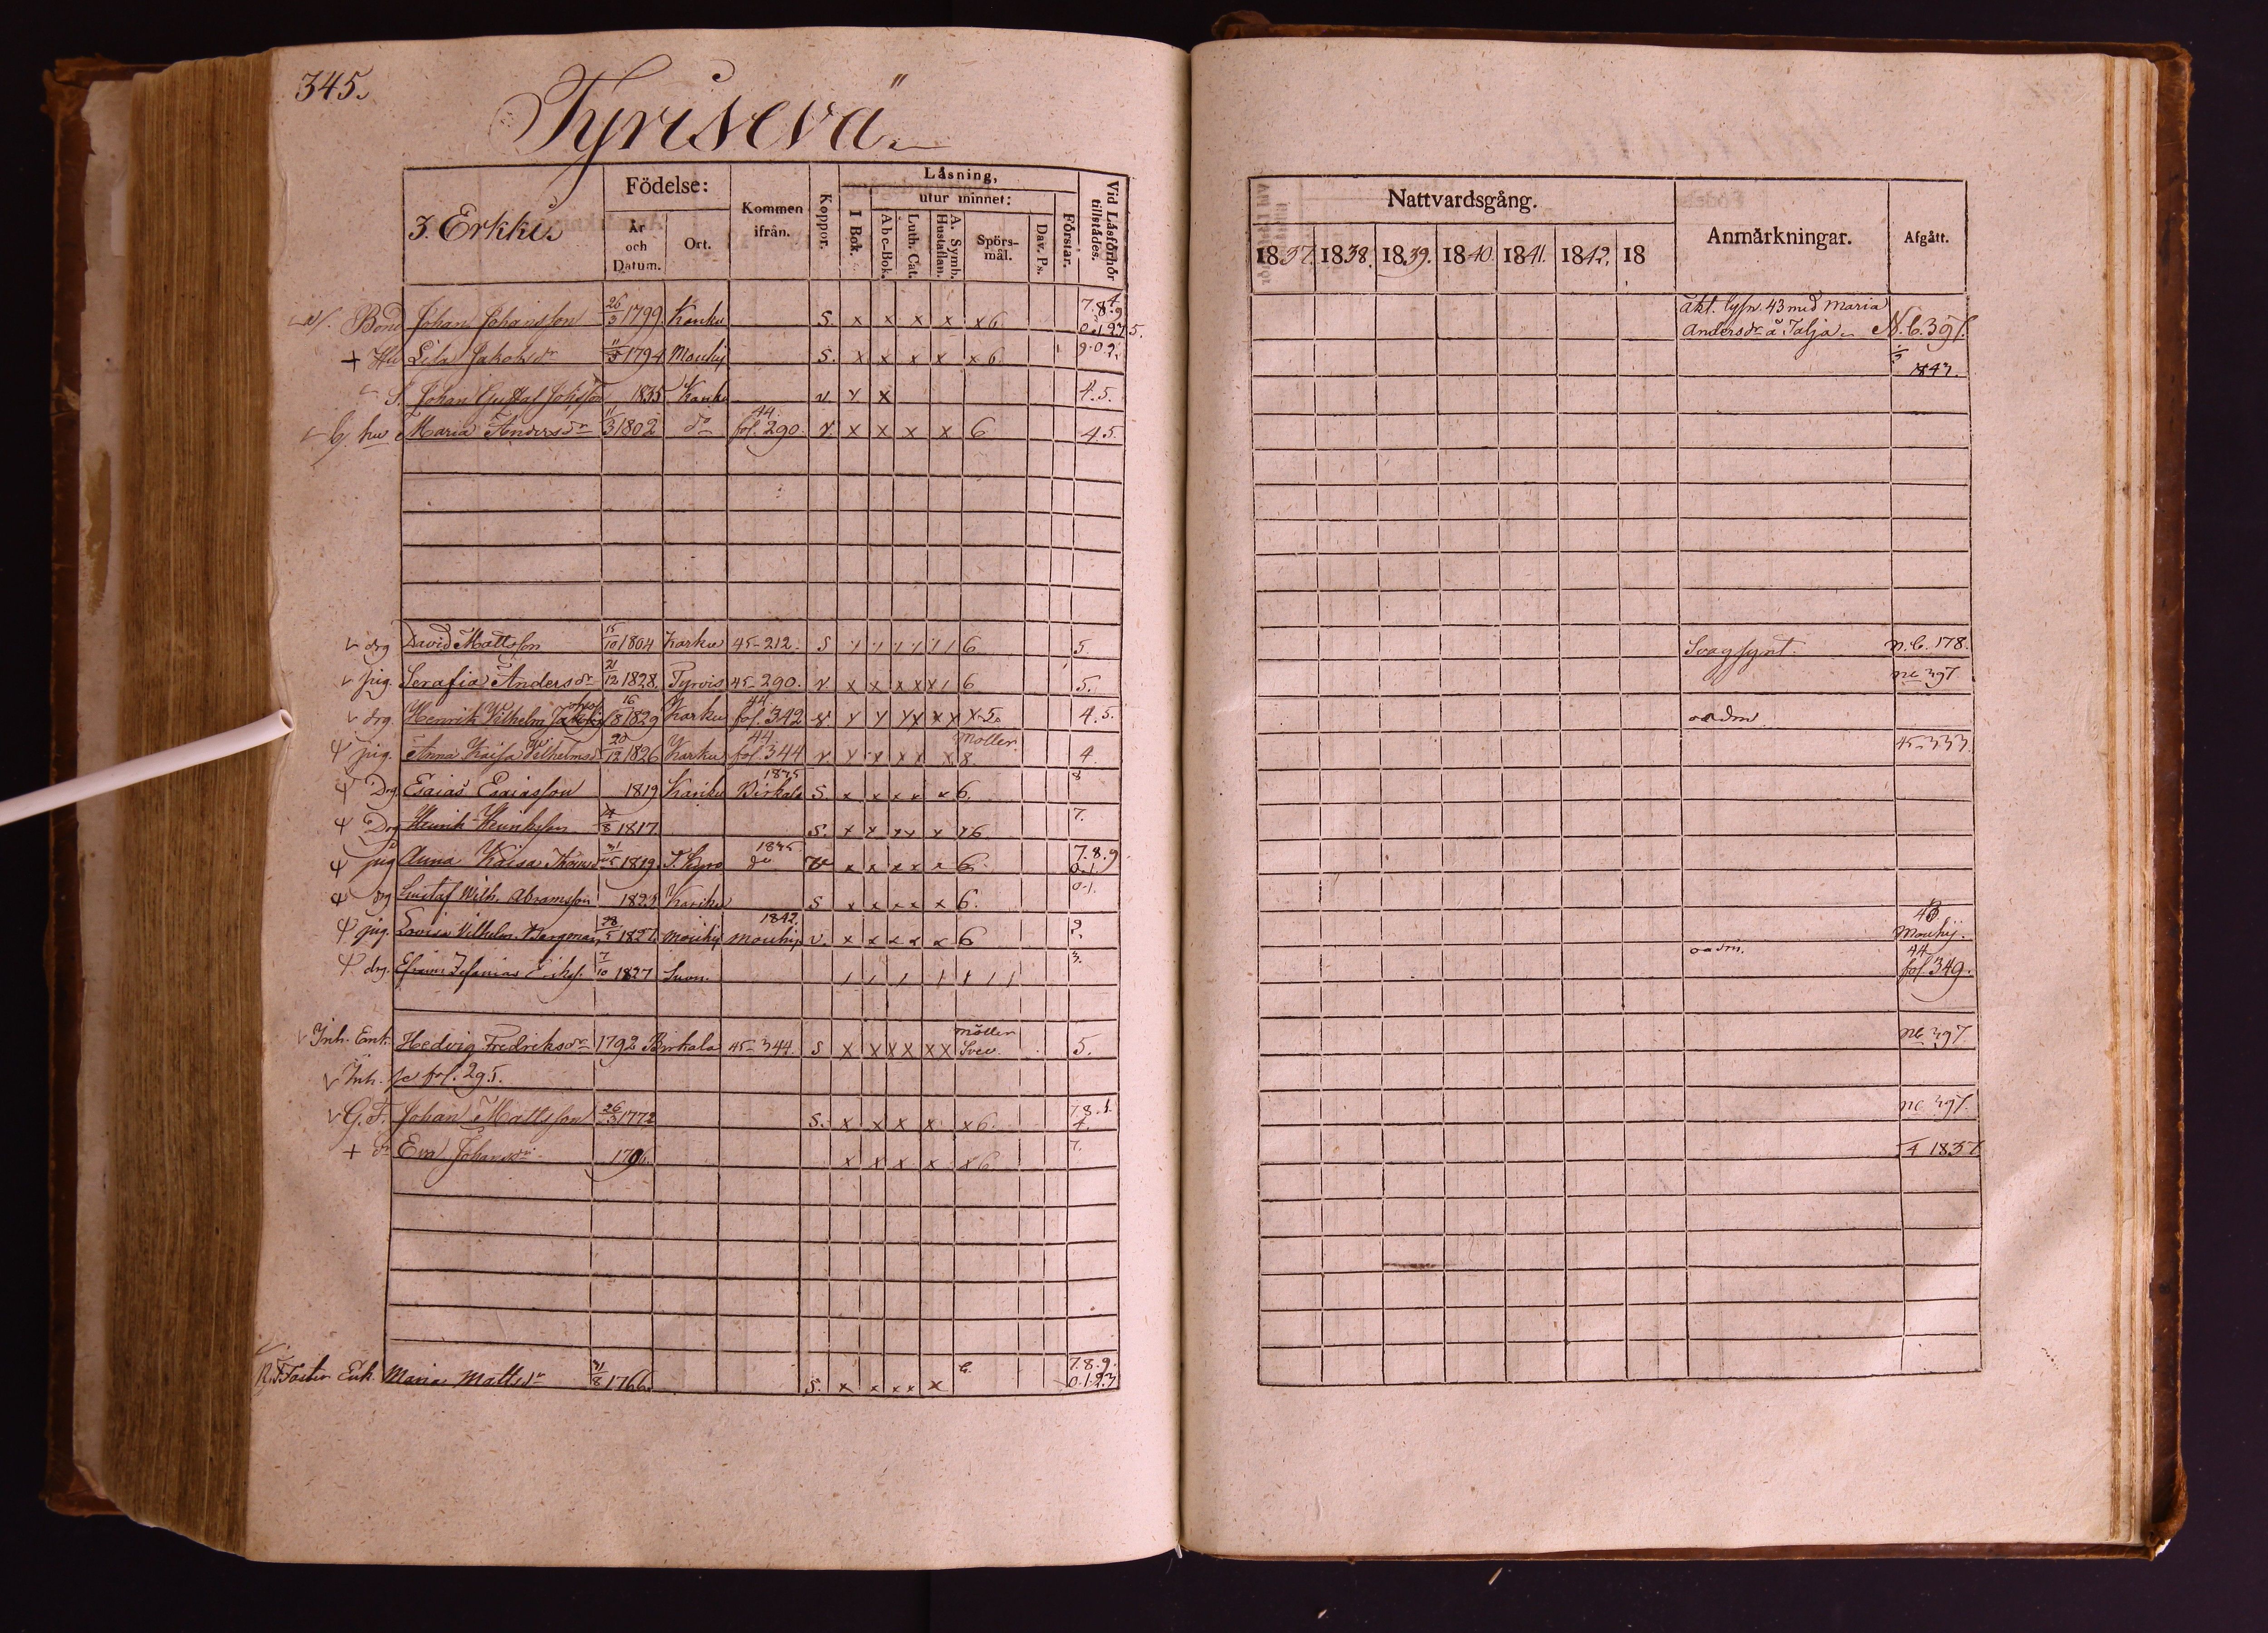 345.
Tyrisevä
3. Erkki
Födelse:
År och Datum.
Ort.
Kommen ifrån.
Koppor.
Läsning,
utur minnet:
I Bok.
Abc-Bok.
Luth. Cat.
A. Symb. Hustaflan.
Spörs-mål.
Dav. Ps.
Förstår.
Vid Läsförhör tillstädes.
Nattvardsgång.
1837. 1838. 1839. 1840. 1841. 1842. 18
Anmärkningar.
Afgått.
Bond Johan Johansson 26/3 1799 Karku S. x x x x x 6 7.8.9 Äkt. lysn. 43 med Maria
Andersdr å Talja N.b. 397.
+ Hu Lisa Jakobsdr 1794 Mouhij S. x x x x x 6 9.0.2. 1843.
S. Johan Gustaf 1835 Karku v x x 4.5.
b, hu Maria Andersdr 11/3 1802 do 44. fol. 290. v. x x x x 6 4.5.
drg David Mattsson 15/10 1804 Karku 45-212. S 6 5. Svagsynt. n.b. 178.
pig. Serafia Andersdr 21/12 1828. Tyrvis 45-290. v x x x x x 6 5. nb 397
drg. Henrik Vilhelm 16/8 1829 Karku 44. fol. 342 x x x x x x 5. 4.5. oadm
pig. Anna Kaisa Vilhelmsdr 20/12 1826 Karku 44. fol. 344 v x x x x x Möller 8 4. 45-333
Drg. Esaias Esaiasson 1819 Karku Birkala S x x x x x 6. 8
Drg Henrik Henriksson 8 1817 S. x x x x x x 6 7.
pig Anna Kaisa 1819. T. Kyro 1835 do v x x x x x 6. 7.8.9 0.1.
drg Gustaf Wilh. Abramsson 1823 Karku S x x x x x 6. 0.1.
pig. Lovisa Vilhelm. Bergman 28/5 1821 Mouhij 1842. Mouhij v. x x x x x 6 2. 43. Mouhij.
drg. Efraim Zefanias Eriks. 7/10 1827 Suon. 3. oadm. 44 fol. 349.
Inh. Enk. Hedvig Fredriksdr 1792 Birkala 45-344. S x x x x x x Möller Svec. 5. nb 397
Inh. se fol. 295.
G. F. Johan Mattsson 26/3 1772 S. x x x x x 6. 7.8.1. 4. nb 397.
+ dr Eva Johansdr 1796. x x x x x 6 7. 1837
Faster Enk. Maria Mattsdr 31/8 1766. S. x x x x x 6. 7.8.9. 0.1.2.3